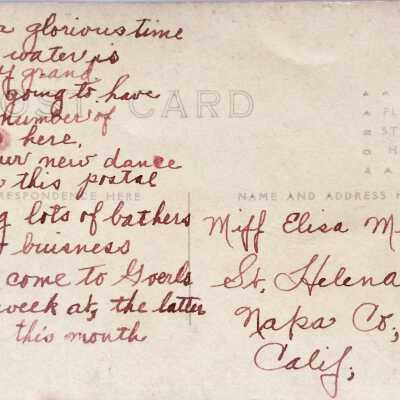 a glorious time
water is
grand
going to have
POST CARD
number of
here.
new dance
this postal
CORRESPONDENCE HERE
NAME AND ADDRESS H
lots of bathers
buisness
come to Goerls
week at, the latter
this month
Miff Elisa M
St. Helena
Napa Co,
Calif,